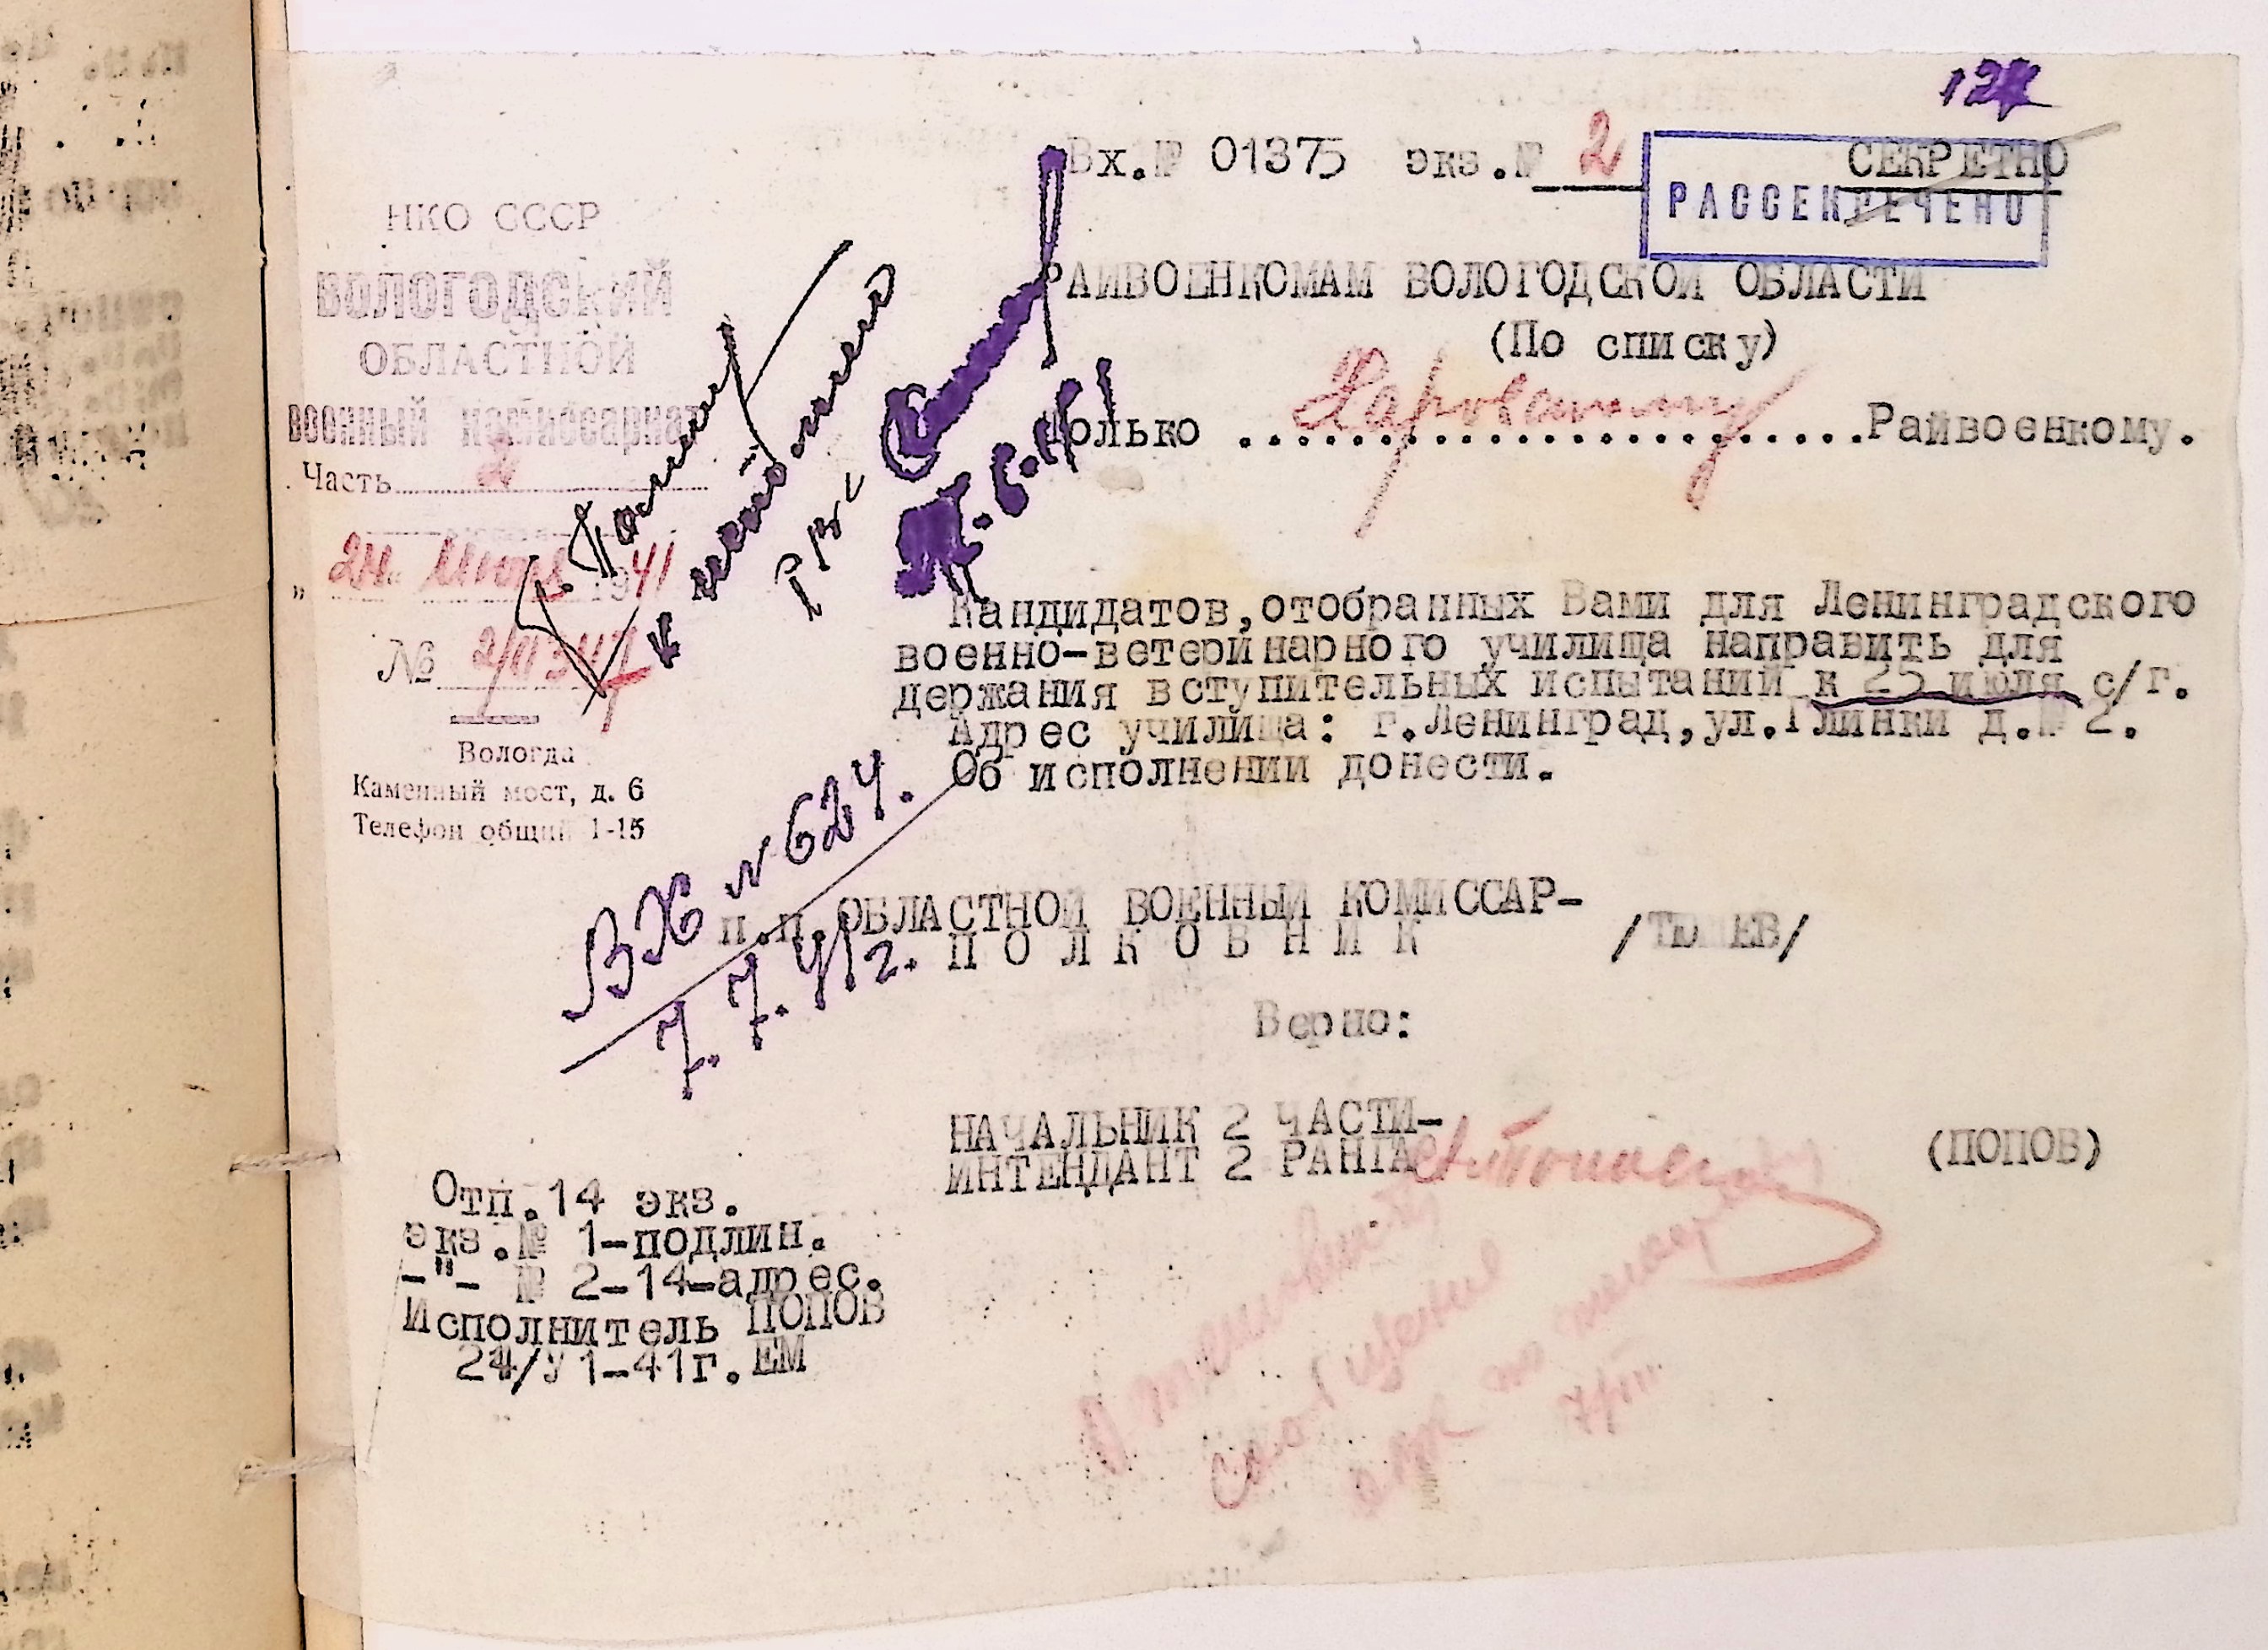 Вх.№ 01375 экз.№ 2
СЕКРЕТНО
РАССЕКРЕЧЕНО
НКО СССР
ВОЛОГОДСКИЙ
ОБЛАСТНОЙ
военный комиссариат
Часть 2
24 Июня 1941
№
Вологда
Каменный мост, д. 6
Телефон общий 1-15
РАЙВОЕНКОМАМ ВОЛОГОДСКОЙ ОБЛАСТИ
(По списку)
Только Харовскому Райвоенкому.
к исполнению
РВК
Кандидатов,отобранных Вами для Ленинградского
военно-ветеринарного училища направить для
держания вступительных испытаний к 25 июля с/г.
Адрес училища: г.Ленинград,ул.Глинки д.№ 2.
Об исполнении донести.
Вх № 624.
7.7.41г.
п.п. ОБЛАСТНОЙ ВОЕННЫЙ КОМИССАР-
ПОЛКОВНИК
Верно:
НАЧАЛЬНИК 2 ЧАСТИ-
ИНТЕНДАНТ 2 РАНГА (ПОПОВ)
Отп.14 экз.
экз.№ 1-подлин.
-"- № 2-14-адрес.
Исполнитель ПОПОВ
24/У1-41г. ЕМ